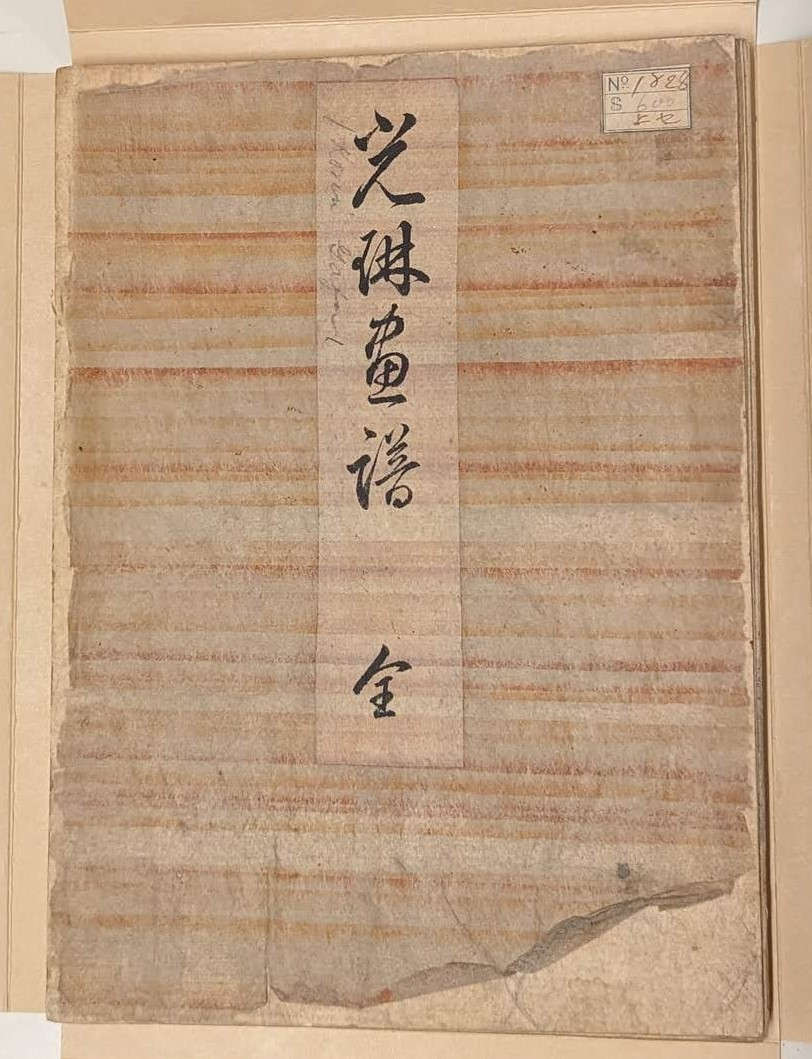 光琳画譜 全
Korin Gafu
No 1828
S 600
よセ